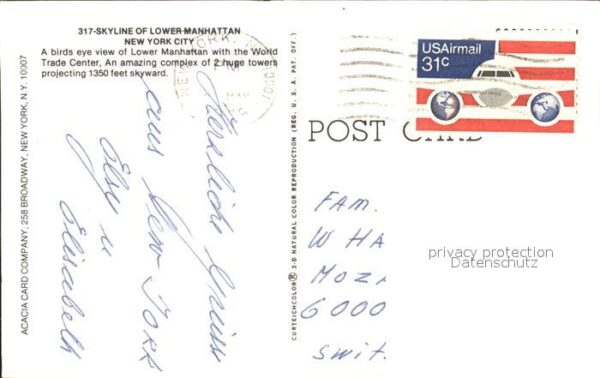 317-SKYLINE OF LOWER MANHATTAN
NEW YORK CITY
A birds eye view of Lower Manhattan with the World
Trade Center, An amazing complex of 2 huge towers
projecting 1350 feet skyward.
ACACIA CARD COMPANY, 258 BROADWAY, NEW YORK, N.Y. 10007
Herzliche Grüsse
aus New York
Elsy u
Elisabeth
CURTEICHCOLOR® 3-D NATURAL COLOR REPRODUCTION (REG. U. S. A. PAT. OFF.)
USAirmail
31c
POST CARD
FAM.
W HA
MOZ
6000
SWIT.
privacy protection
Datenschutz